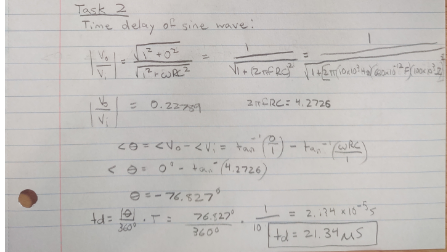 Task 2
Time delay of sine wave:
|Vo/Vi| = √(1² + 0²) / √(1² + ωRC²) = 1 / √(1 + (2πfRC)²) = 1 / √(1 + [2π(10x10³ Hz)(680x10⁻¹² F)(100x10³ Ω)]²)
|Vo/Vi| = 0.22789 2πfRC = 4.2726
<θ = <Vo - <Vi = tan⁻¹(0/1) - tan⁻¹(ωRC/1)
<θ = 0° - tan⁻¹(4.2726)
θ = -76.827°
td = |θ|/360° · T = 76.827°/360° · 1/10 = 2.134 x 10⁻⁵ s
td = 21.34 μs